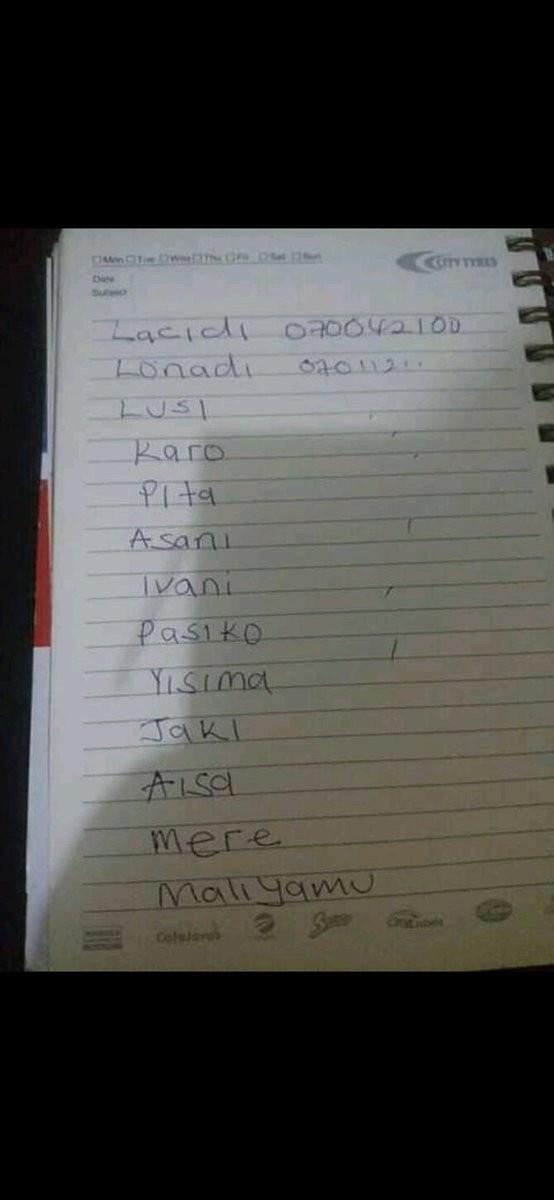 Mon Tue Wed Thu Fri Sat Sun
CITY TYRES
Date
Subject
Lacidi 070042100
Lonadi 0701121..
Lusi
Karo
Pita
Asani
Ivani
Pasiko
Yisima
Jaki
Aisa
Mere
Maliyamu